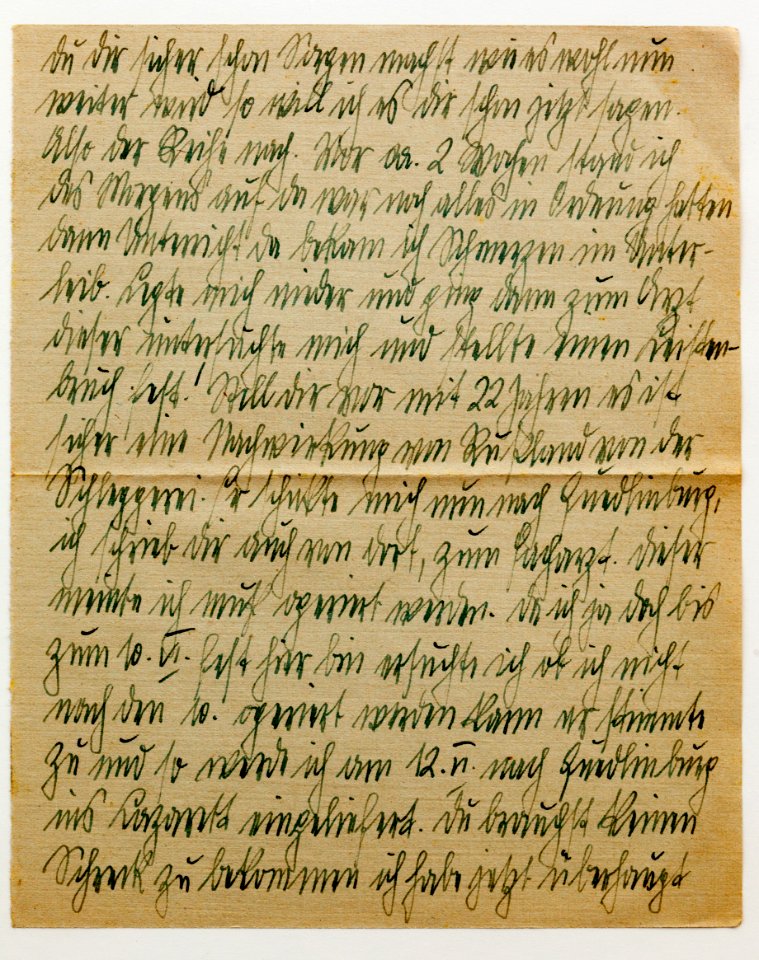 du dir sicher schon Sorgen machst wie es wohl nun
weiter wird so will ich es dir schon jetzt sagen.
Also der Reihe nach. Vor ca. 2 Wochen stand ich
des Morgens auf da war noch alles in Ordnung hatten
dann Unterricht da bekam ich Schmerzen im Unter-
leib. Legte mich nieder und ging dann zum Arzt
dieser untersuchte mich und stellte einen Leisten-
bruch fest! Stell dir vor mit 22 Jahren es ist
sicher eine Nachwirkung von Rußland von der
Schlepperei. Er schickte mich nun nach Quedlinburg,
ich schrieb dir auch von dort, zum Facharzt. dieser
meinte ich muß operiert werden. da ich ja doch bis
zum 10. VI. fest hier bin ersuchte ich ob ich nicht
nach den 10. operiert werden kann er stimmte
zu und so werde ich am 12. II. nach Quedlinburg
ins Lazarett eingeliefert. Du brauchst keinen
Schreck zu bekommen ich habe jetzt überhaupt